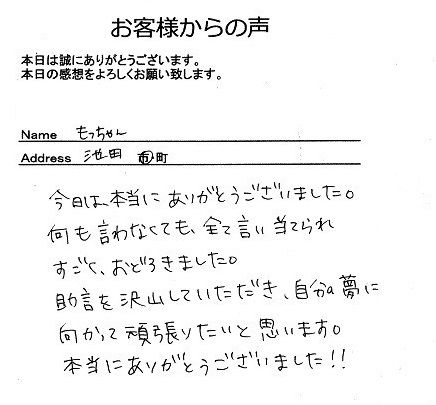 お客様からの声
本日は誠にありがとうございます。
本日の感想をよろしくお願い致します。
Name もっちゃん
Address 池田 市・町
今日は、本当にありがとうございました。
何も言わなくても、全て言い当てられ
すごく、おどろきました。
助言を沢山していただき、自分の夢に
向かって頑張りたいと思います。
本当にありがとうございました!!